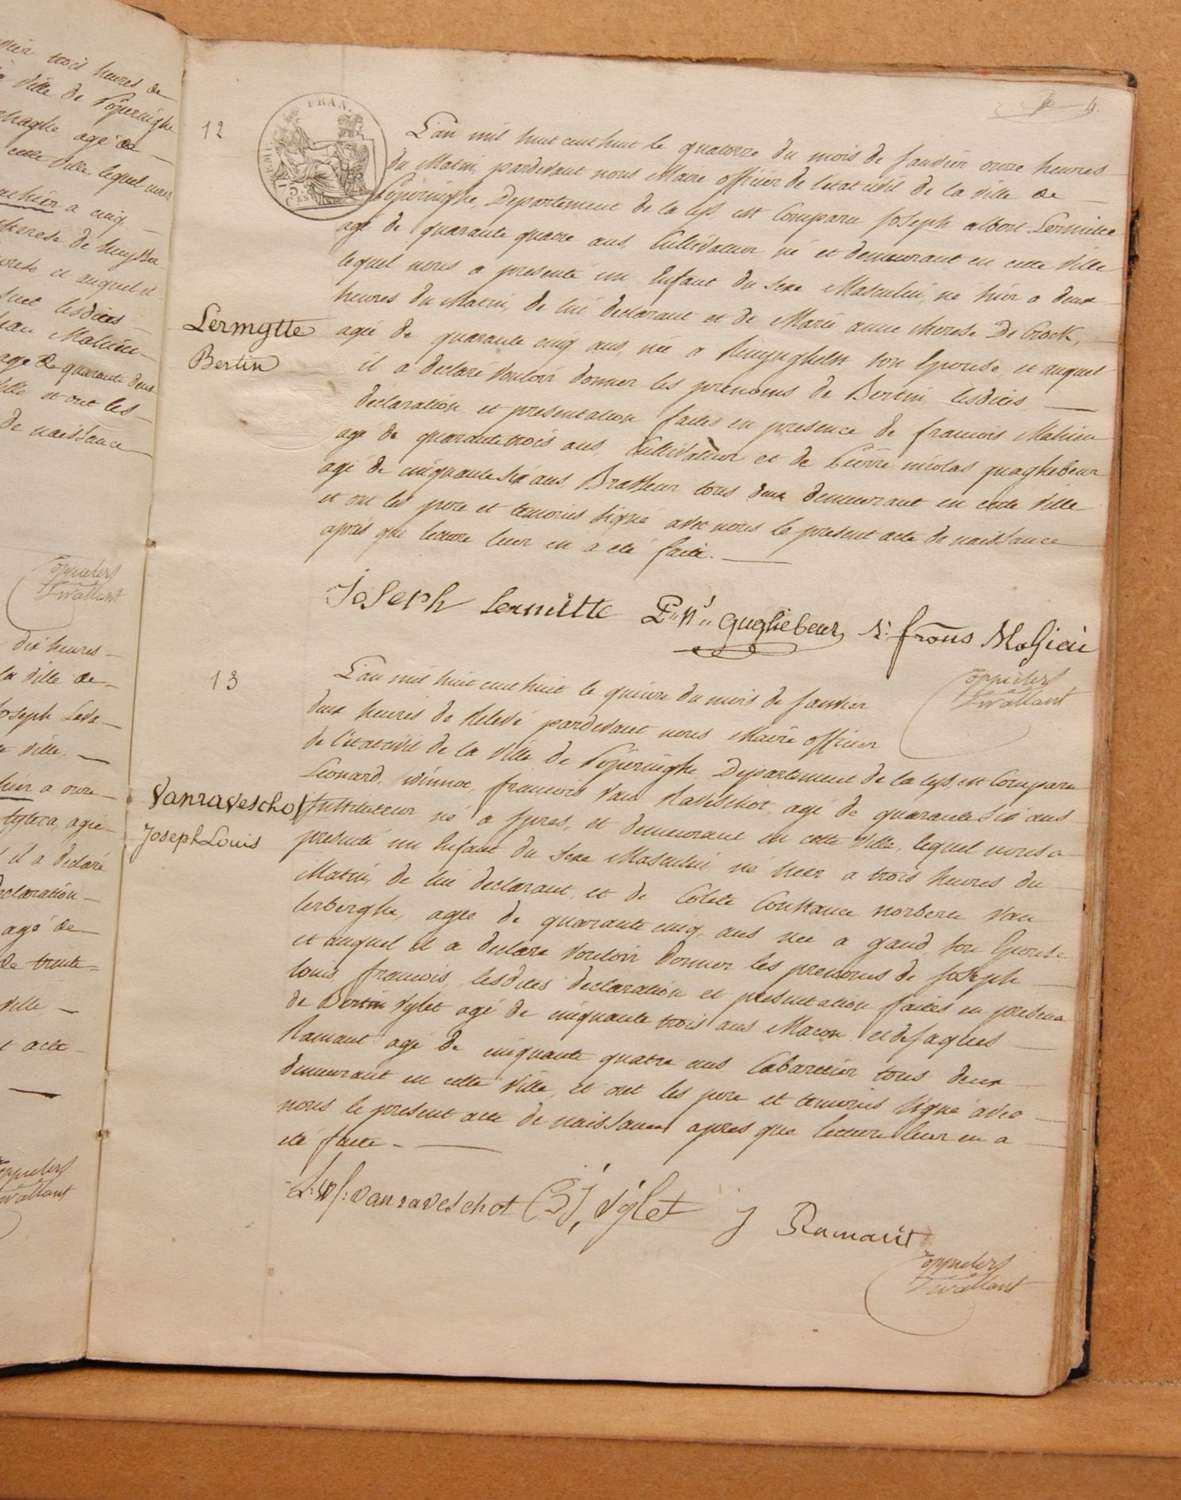 trois heures de
ville de Poperinghe
agé de
cette ville lequel nous
hier a cinq
therese de
et auquel il
lesdites
Mahieu
age de quarante deux
ville et ont les
de naissance
dix heures
la ville de
Joseph
ville
hier a onze
agée
il a déclaré
declaration
agé de
de trente
ville
acte
4
12
L'an mil huit cent huit le quatorze du mois de Janvier onze heures
du Matin, pardevant nous Maire officier de l'etat civil de la ville de
Poperinghe Departement de la Lys est Comparu Joseph albert Lermitte
agé de quarante quatre ans Cultivateur né et demeurant en cette ville
lequel nous a presenté un Enfant du sexe Masculin, né hier a deux
heures du Matin, de lui declarant et de Marie anne therese De Crock,
agée de quarante cinq ans, née a Reninghelst son Epouse, et auquel
il a declaré vouloir donner les prenoms de Bertin lesdites
declaration et presentation faites en presence de francois Mahieu
agé de quarante trois ans, Cultivateur et de Pierre nicolas quaghebeur
agé de cinquante six ans Brasseur tous deux demeurant en cette ville
et ont les pere et temoins signé avec nous le present acte de naissance
après que lecture leur en a été faite.
Lermytte
Bertin
Joseph Lermitte P: N: Qughebeur J: frans Mahieu
13
L'an mil huit cent huit le quinze du mois de Janvier
deux heures de relevé pardevant nous Maire officier
de l'etat civil de la ville de Poperinghe Departement de la Lys, est Comparu
Leonard, winnoc, francois van Raveschot, agé de quarante six ans
Instituteur né a Ypres, et demeurant en cette ville, lequel nous a
presenté un Enfant du sexe Masculin né hier a trois heures du
Matin, de lui declarant, et de Colete Constance norberte Van
lerberghe, agée de quarante cinq ans née a gand, son Epouse
et auquel il a declaré vouloir donner les prenoms de Joseph
louis, francois, lesdites declaration et presentation faites en presence
de Bertin Vylet agé de cinquante trois ans Macon et de Jaques
Ramaut agé de cinquante quatre ans Cabaretier tous deux
demeurant en cette ville, et ont les pere et temoins signé avec
nous le present acte de naissance apres que lecture leur en a
été faite.
Vanraveschot
Joseph Louis
L: W: f: vanraveschot B: Vylet J Ramaut